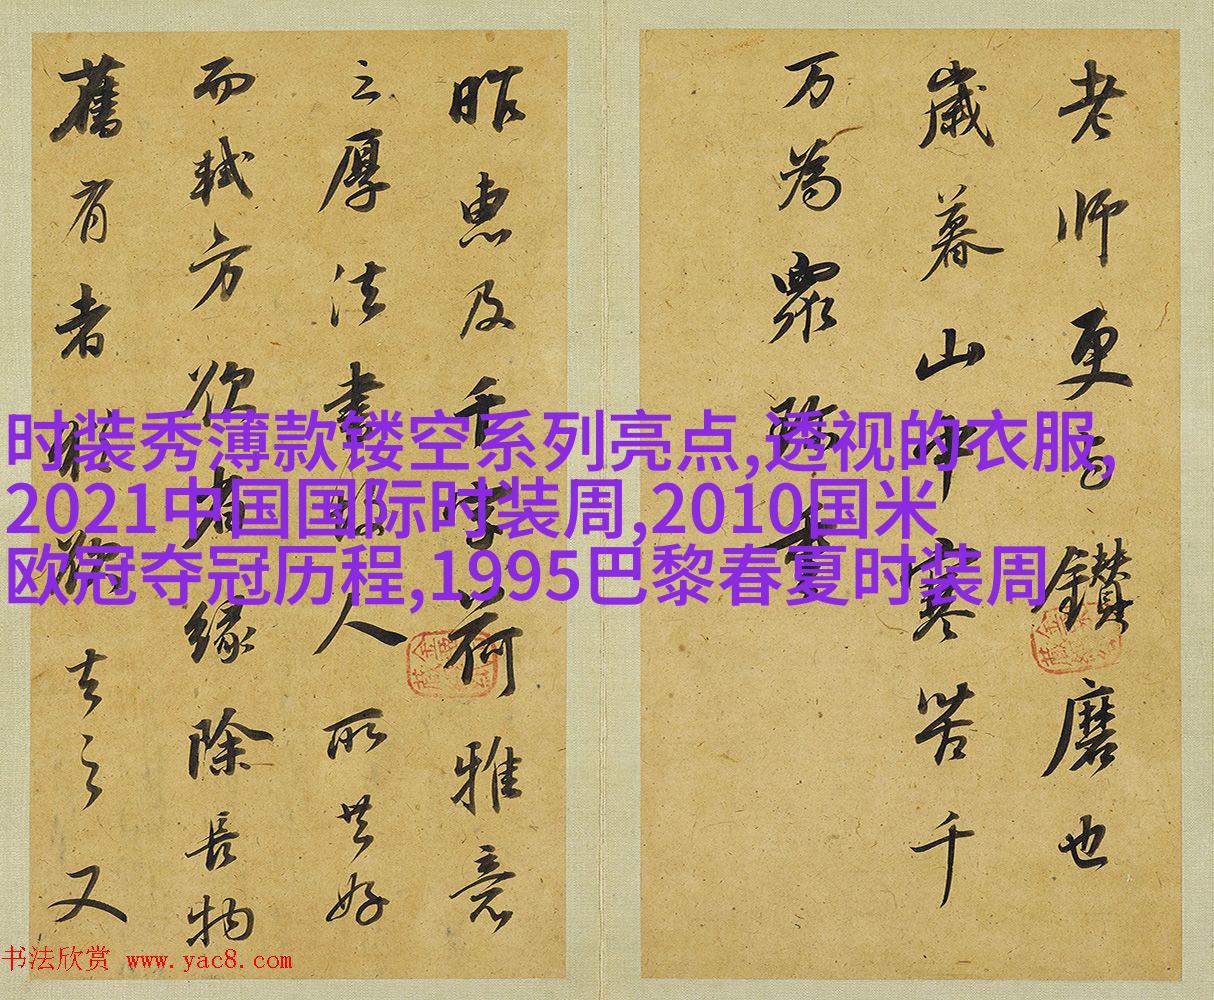 老师更与鑚磨也
歲暮山中寒苦千
万為眾弥重
昨惠及千字荷雅意
之厚法書故人所共好
而軾方欲省緣除長物
舊有者猶欲去之又
时装秀薄款镂空系列亮点,透视的衣服,
2021中国国际时装周,2010国米
欧冠夺冠历程,1995巴黎春夏时装周
书法欣赏 www.yac8.com